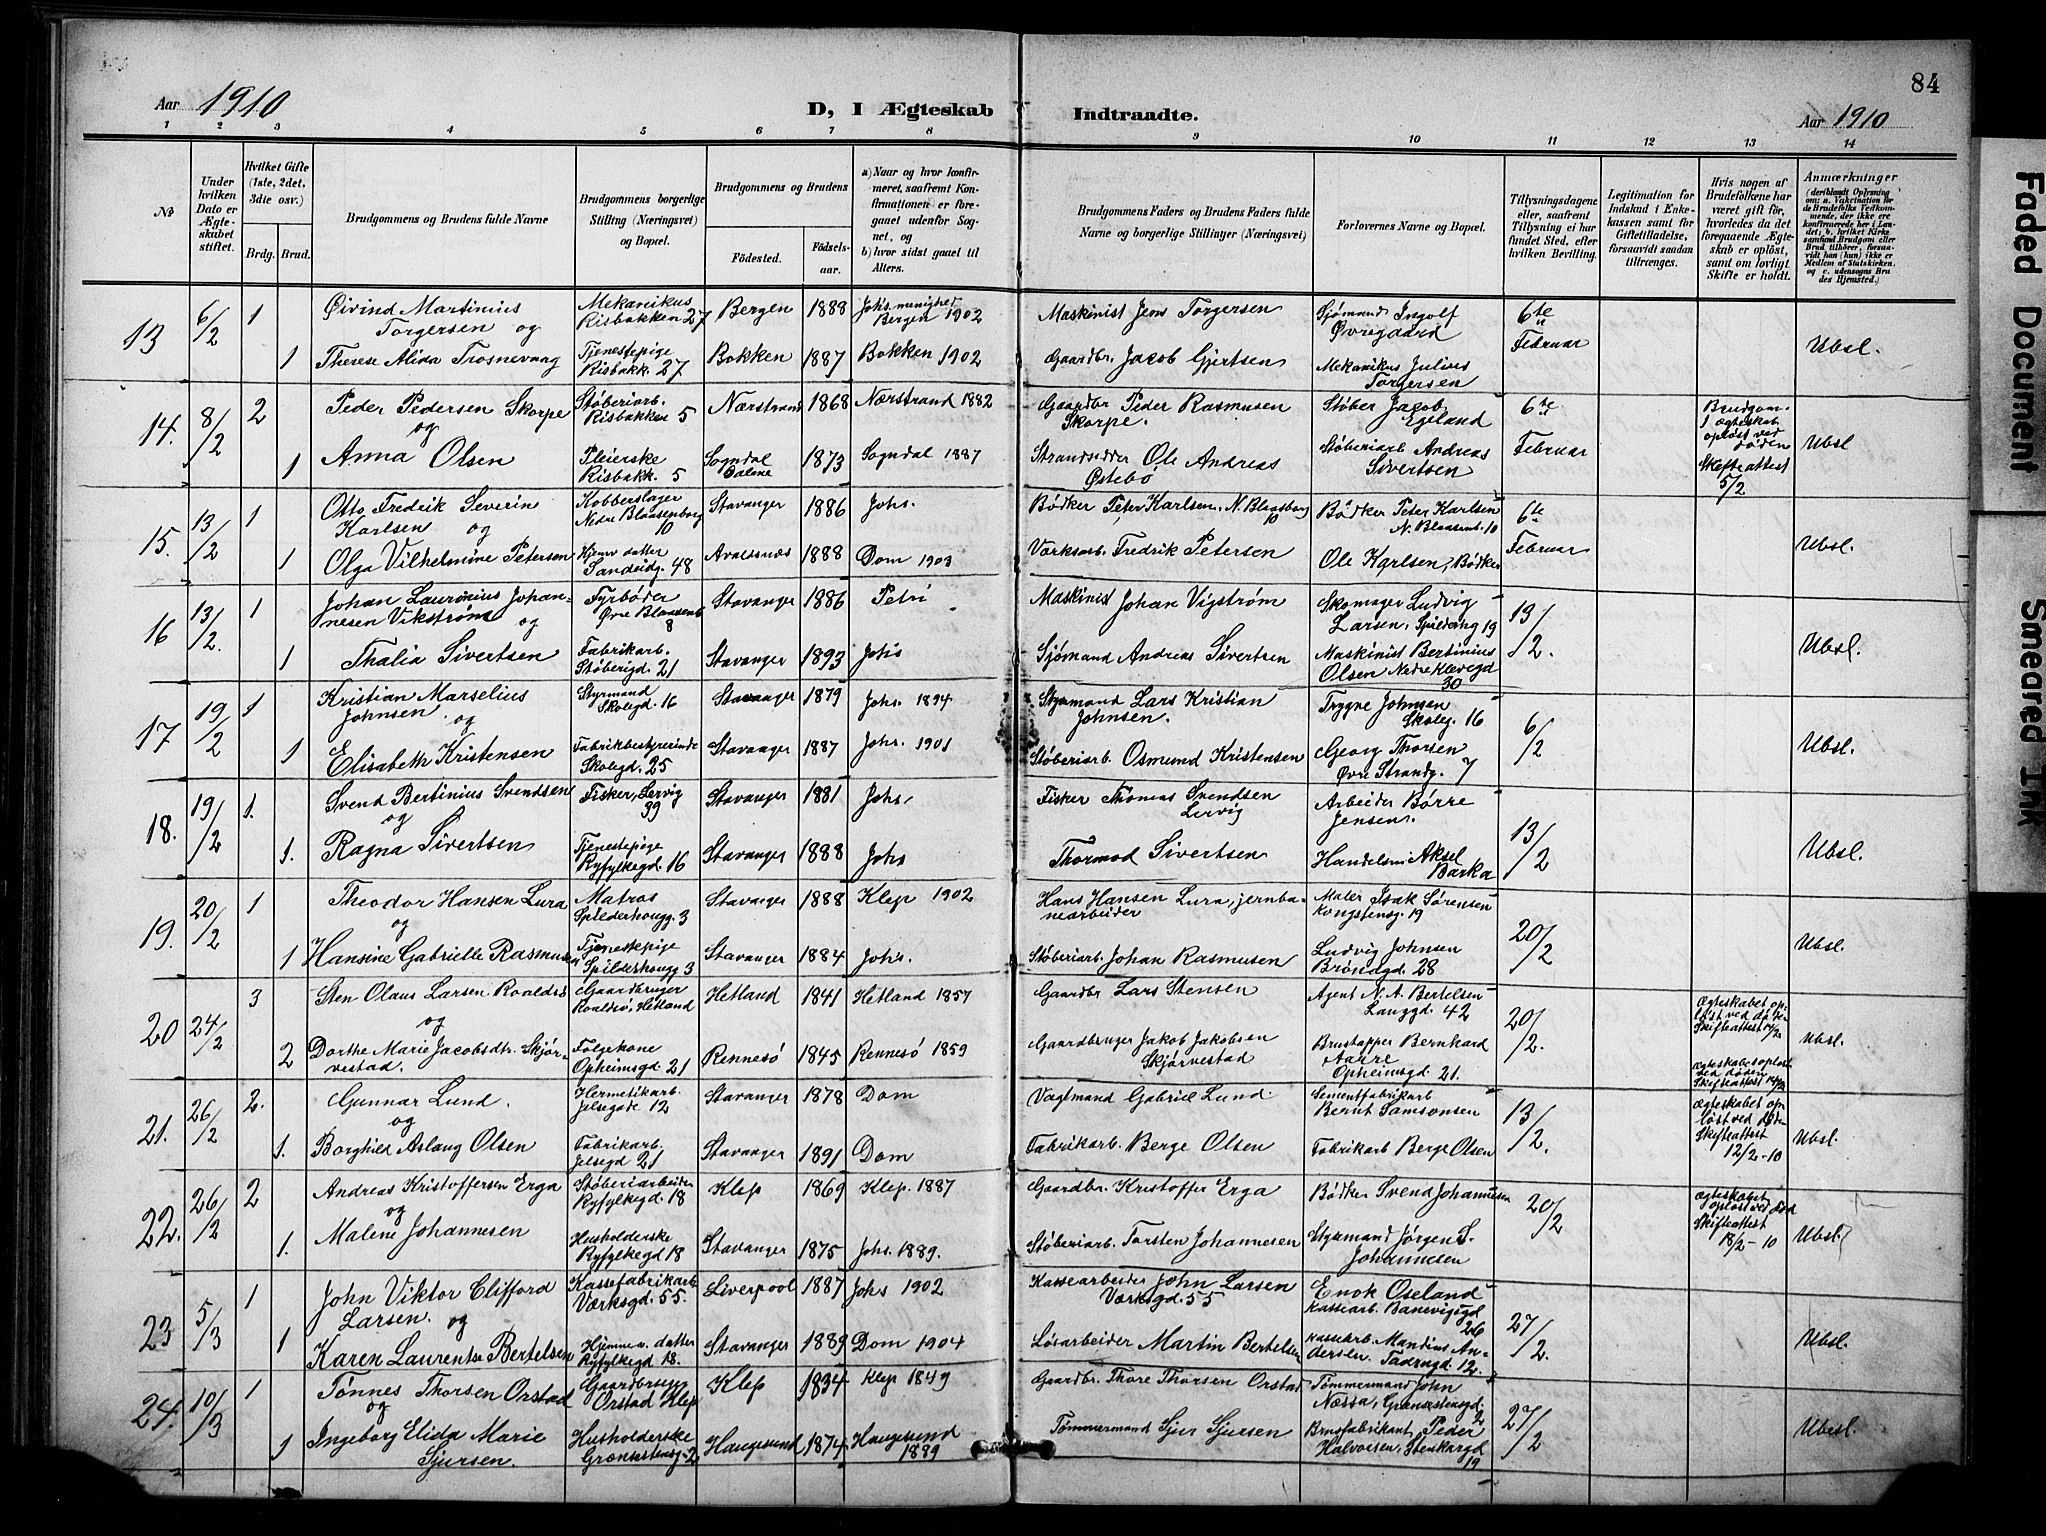 84
Aar 1910
D, I Ægteskab
Indtraadte.
Aar 1910
1 2 3 4 5 6 7 8 9 10 11 12 13 14
№
Under hvilken Dato er Ægteskabet stiftet.
Hvilket Gifte (1ste, 2det, 3die osv.)
Brdg. Brud.
Brudgommens og Brudens fulde Navne
Brudgommens borgerlige Stilling (Næringsvei) og Bopæl.
Brudgommens og Brudens
Födested.
Födselsaar.
a) Naar og hvor konfirmeret, saafremt Konfirmationen er foregaaet udenfor Sognet, og
b) hvor sidst gaaet til Alters.
Brudgommens Faders og Brudens Faders fulde Navne og borgerlige Stillinger (Næringsvei)
Forlovernes Navne og Bopæl.
Tillysningsdagene eller, saafremt Tillysning ei har fundet Sted, efter hvilken Bevilling.
Legitimation for Indskud i Enkekassen samt for Giftetilladelse, forsaavidt saadan tiltrænges.
Hvis nogen af Brudefolkene har været gift för, hvorledes da det foregaaende Ægteskab er oplöst, samt om lovligt Skifte er holdt.
Anmærkninger (deriblandt Oplysning om: a. Vakcination for de Brudefolks Vedkommende, der ikke ere konfirmerede her i Landet; b. hvilket Kirkesamfund Brudgom eller Brud tilhörer, forsaavidt han (hun) ikke er Medlem af Statskirken, og c. udensogns Brudes Hjemsted.)
13 6/2 1 Øivind Martinius Torgersen og Mekanikus Risbakken 27 Bergen 1888 Johs. menighed Bergen 1902 Maskinist Jens Torgersen Sjømand Ingolf Øvregaard 6te Februar
1 Therese Alida Trosnevaag Tjenestepige Risbakk. 27 Bokken 1887 Bokken 1902 Gaardbr. Jacob Gjertsen Mekanikus Julius Torgersen Ubsl.
14. 8/2 2 Peder Pedersen Skorpe og Støberiarb. Risbakken 5 Nærstrand 1868 Nærstrand 1882 Gaardbr Peder Rasmusen Skorpe. Støber Jacob Egeland 6te Februar Brudgom. 1 ægteskab opløst ved døden Skifteattest 5/2 Ubsl
1 Anna Olsen Pleierske Risbakk. 5 Sogndal Dalene 1873 Sogndal 1887 Strandsidder Ole Andreas Østebø Støberiarb Andreas Sivertsen
15. 13/2 1 Otto Fredrik Severin Karlsen og Kobberslager Nedre Blaasenborg 10 Stavanger 1886 Johs. Bødker Peter Karlsen, N. Blaasborg 10 Bødker Peter Karlsen N. Blaasenb. 10 6te Februar
1 Olga Vilhelmine Petersen Hjemv. datter Sandeidg. 48 Avaldsnes 1888 Dom 1903 Værksarb. Fredrik Petersen Ole Karlsen, Bødker Ubsl.
16 13/2. 1 Johan Laurinius Johannesen Vikstrøm og Fyrbøder Øvre Blaasenb 8 Stavanger 1886 Petri Maskinist Johan Vigstrøm Skomager Ludvig Larsen, Spilderhg 19 13/2.
1 Thalia Sivertsen Fabrikarb. Støberigd. 21 Stavanger 1893 Johs Sjømand Andreas Sivertsen Maskinist Bertinius Olsen Nedre Klevegd 30 Ubsl.
17 19/2 1 Kristian Marselius Johnsen og Styrmand Skolegd. 16 Stavanger 1879 Johs. 1894. Styrmand Lars Kristian Johnsen. Trygve Johnsen Skoleg. 16 6/2
1 Elisabeth Kristensen Fabrikbestyrerinde Skolegd. 25 Stavanger 1887 Johs. 1901 Støberiarb. Osmund Kristensen Georg Thorsen Øvre Strandg. 7 Ubsl.
18. 19/2 1. Svend Bertinius Svendsen og Fisker, Lervig 39 Stavanger 1881 Johs. Fisker Thomas Svendsen Lervig Arbeider Børre Jensen. 13/2
1. Ragna Sivertsen Tjenestepige Ryfylkegd. 16 Stavanger 1888 Johs Thormod Sivertsen Handelsm Aksel Barka Ubsl.
19. 20/2 1 Theodor Hansen Lura og Matros Spilderhougg. 3 Stavanger 1888 Klep 1902 Hans Hansen Lura, jernbanearbeider Maler Isak Sørensen Kongstensg. 19 20/2
1 Hansine Gabrielle Rasmusen Tjenestepige Spilderhougg 3 Stavanger 1884 Johs. Støberiarb. Johan Rasmusen Ludvig Johnsen Brøndgd. 28 Ubsl.
20 24/2 3 Sten Olaus Larsen Roaldsø og Gaardbruger Roaldsø, Hetland Hetland 1841 Hetland 1857 Gaardbr Lars Stensen Agent N. A. Bertelsen Langgd. 42 20/2. ægteskabet opløst ved døden Skifteattest 14/2
2 Dorthe Marie Jacobsdtr. Skjørvestad. Følgekone Opheimsgd. 21 Rennesø 1845 Rennesø 1859 Gaardbruger Jakob Jakobsen Skjørvestad Brustapper Bernhard Aarre Opheimsgd. 21. ægteskabet opløst ved døden Skifteattest 14/2 Ubsl.
21. 26/2 2. Gunnar Lund. og Hermetikarb. Jelsegate 12 Stavanger 1878 Dom Vagtmand Gabriel Lund. Sementfabrikarb Bernt Samsonsen 13/2. ægteskabet opløst ved døden Skifteattest 12/2-10
1. Borghild Aslaug Olsen Fabrikarb. Jelsegd 21 Stavanger 1891 Dom Fabrikarb. Berge Olsen Fabrikarb Berge Olsen Ubsl.
22. 26/2 2 Andreas Kristoffersen Erga og Støberiarbeider Ryfylkegd. 18 Klep 1869 Klep. 1887 Gaardbr. Kristoffer Erga Bødker Svend Johannesen 20/2 ægteskabet opløst ved død Skifteattest 18/2-10
1. Malene Johannesen Husholderske Ryfylkegd 18 Stavanger 1875 Johs. 1889. Støberiarb. Torsten Johannesen Styrmand Jørgen S. Johannesen Ubsl.
23 5/3 1 John Viktor Clifford Larsen. og Kassefabrikarb. Værksgd. 55. Liverpool 1887 Johs 1902 Kassearbeider John Larsen Værksgd. 55 Enok Oseland kassearb. Banevigsgd 26 27/2.
1 Karen Laurentse Bertelsen Hjemmev. datter Ryfylkegd 18. Stavanger 1889 Dom 1904 Løsarbeider Martin Bertelsen kassearb. Mandius Andersen. Tadrugd. 12. Ubsl.
24. 10/3 1 Tønnes Thorsen Orstad og Gaardbruger Orstad Klep Klep 1834 Klep 1849 Gaardbr. Thore Thorsen Orstad Tømmermand John Næssa, Grænsestensgd. 2 27/2
1 Ingeborg Elida Marie Sjursen. Husholderske Grænsestensg. 2 Haugesund 1874 Haugesund 1889 Tømmermand Sjur Sjursen Brusfabrikant Peder Halvorsen, Stenkargd 19 Ubsl.
Faded Document
Smeared Ink